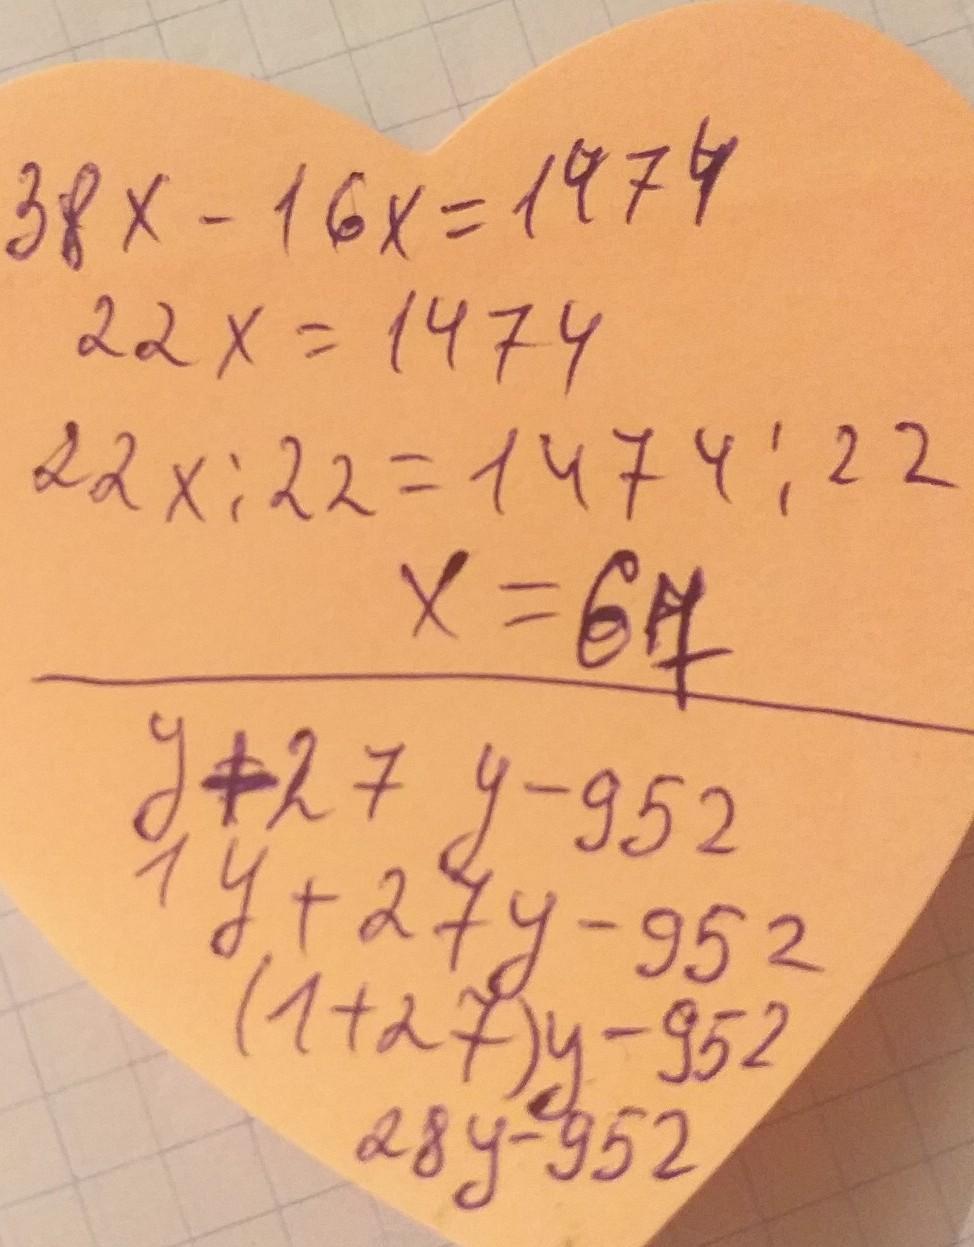 38x - 16x = 1474
22x = 1474
22x : 22 = 1474 : 22
x = 67
y + 27 y - 952
1y + 27y - 952
(1 + 27)y - 952
28y - 952